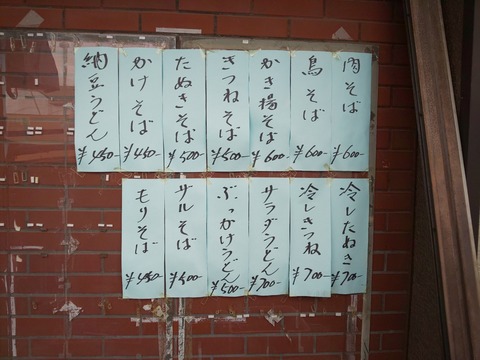 肉そば ¥600-
鳥そば ¥600-
かき揚そば ¥600-
きつねそば ¥500-
たぬきそば ¥500-
かけそば ¥450-
納豆うどん ¥450-
冷したぬき ¥700-
冷しきつね ¥700-
サラダうどん ¥700-
ぶっかけうどん ¥500-
ザルそば ¥500-
もりそば ¥450-